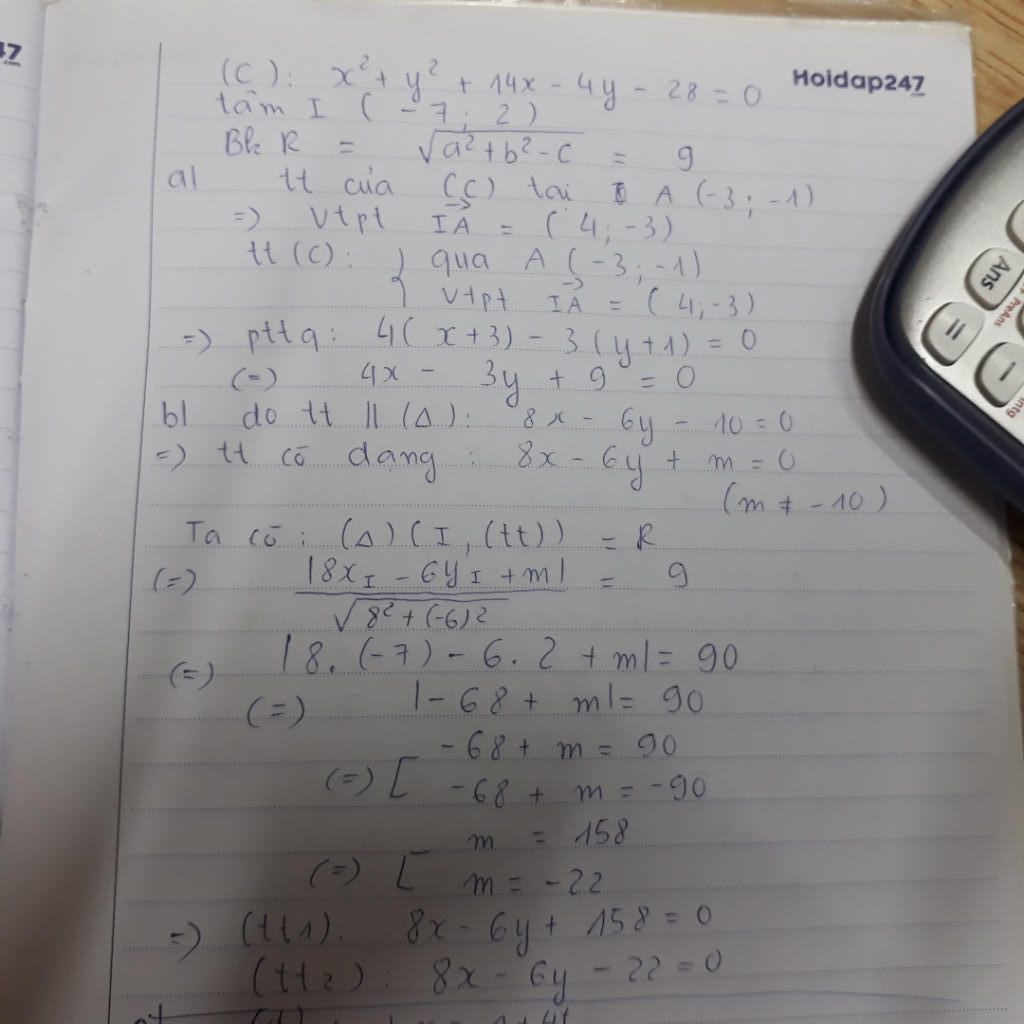 47
.com
Hoidap247
(C): x² + y² + 14x - 4y - 28 = 0
tâm I (-7; 2)
Bk R = √a² + b² - c = 9
a) tt của (C) tại A (-3; -1)
=> Vtpt IA = (4; -3)
tt (C): { qua A (-3; -1)
Vtpt IA = (4; -3)
=> pttq: 4(x+3) - 3(y+1) = 0
(=) 4x - 3y + 9 = 0
b) do tt || (Δ): 8x - 6y - 10 = 0
=> tt có dạng: 8x - 6y + m = 0
(m ≠ -10)
Ta có: (Δ)(I, (tt)) = R
(=) |8x_I - 6y_I + m| / √8² + (-6)² = 9
(=) |8.(-7) - 6.2 + m| = 90
(=) |-68 + m| = 90
-68 + m = 90
(=) [ -68 + m = -90
m = 158
(=) [ m = -22
=> (tt1): 8x - 6y + 158 = 0
(tt2): 8x - 6y - 22 = 0
Ans
PreAns
=
-